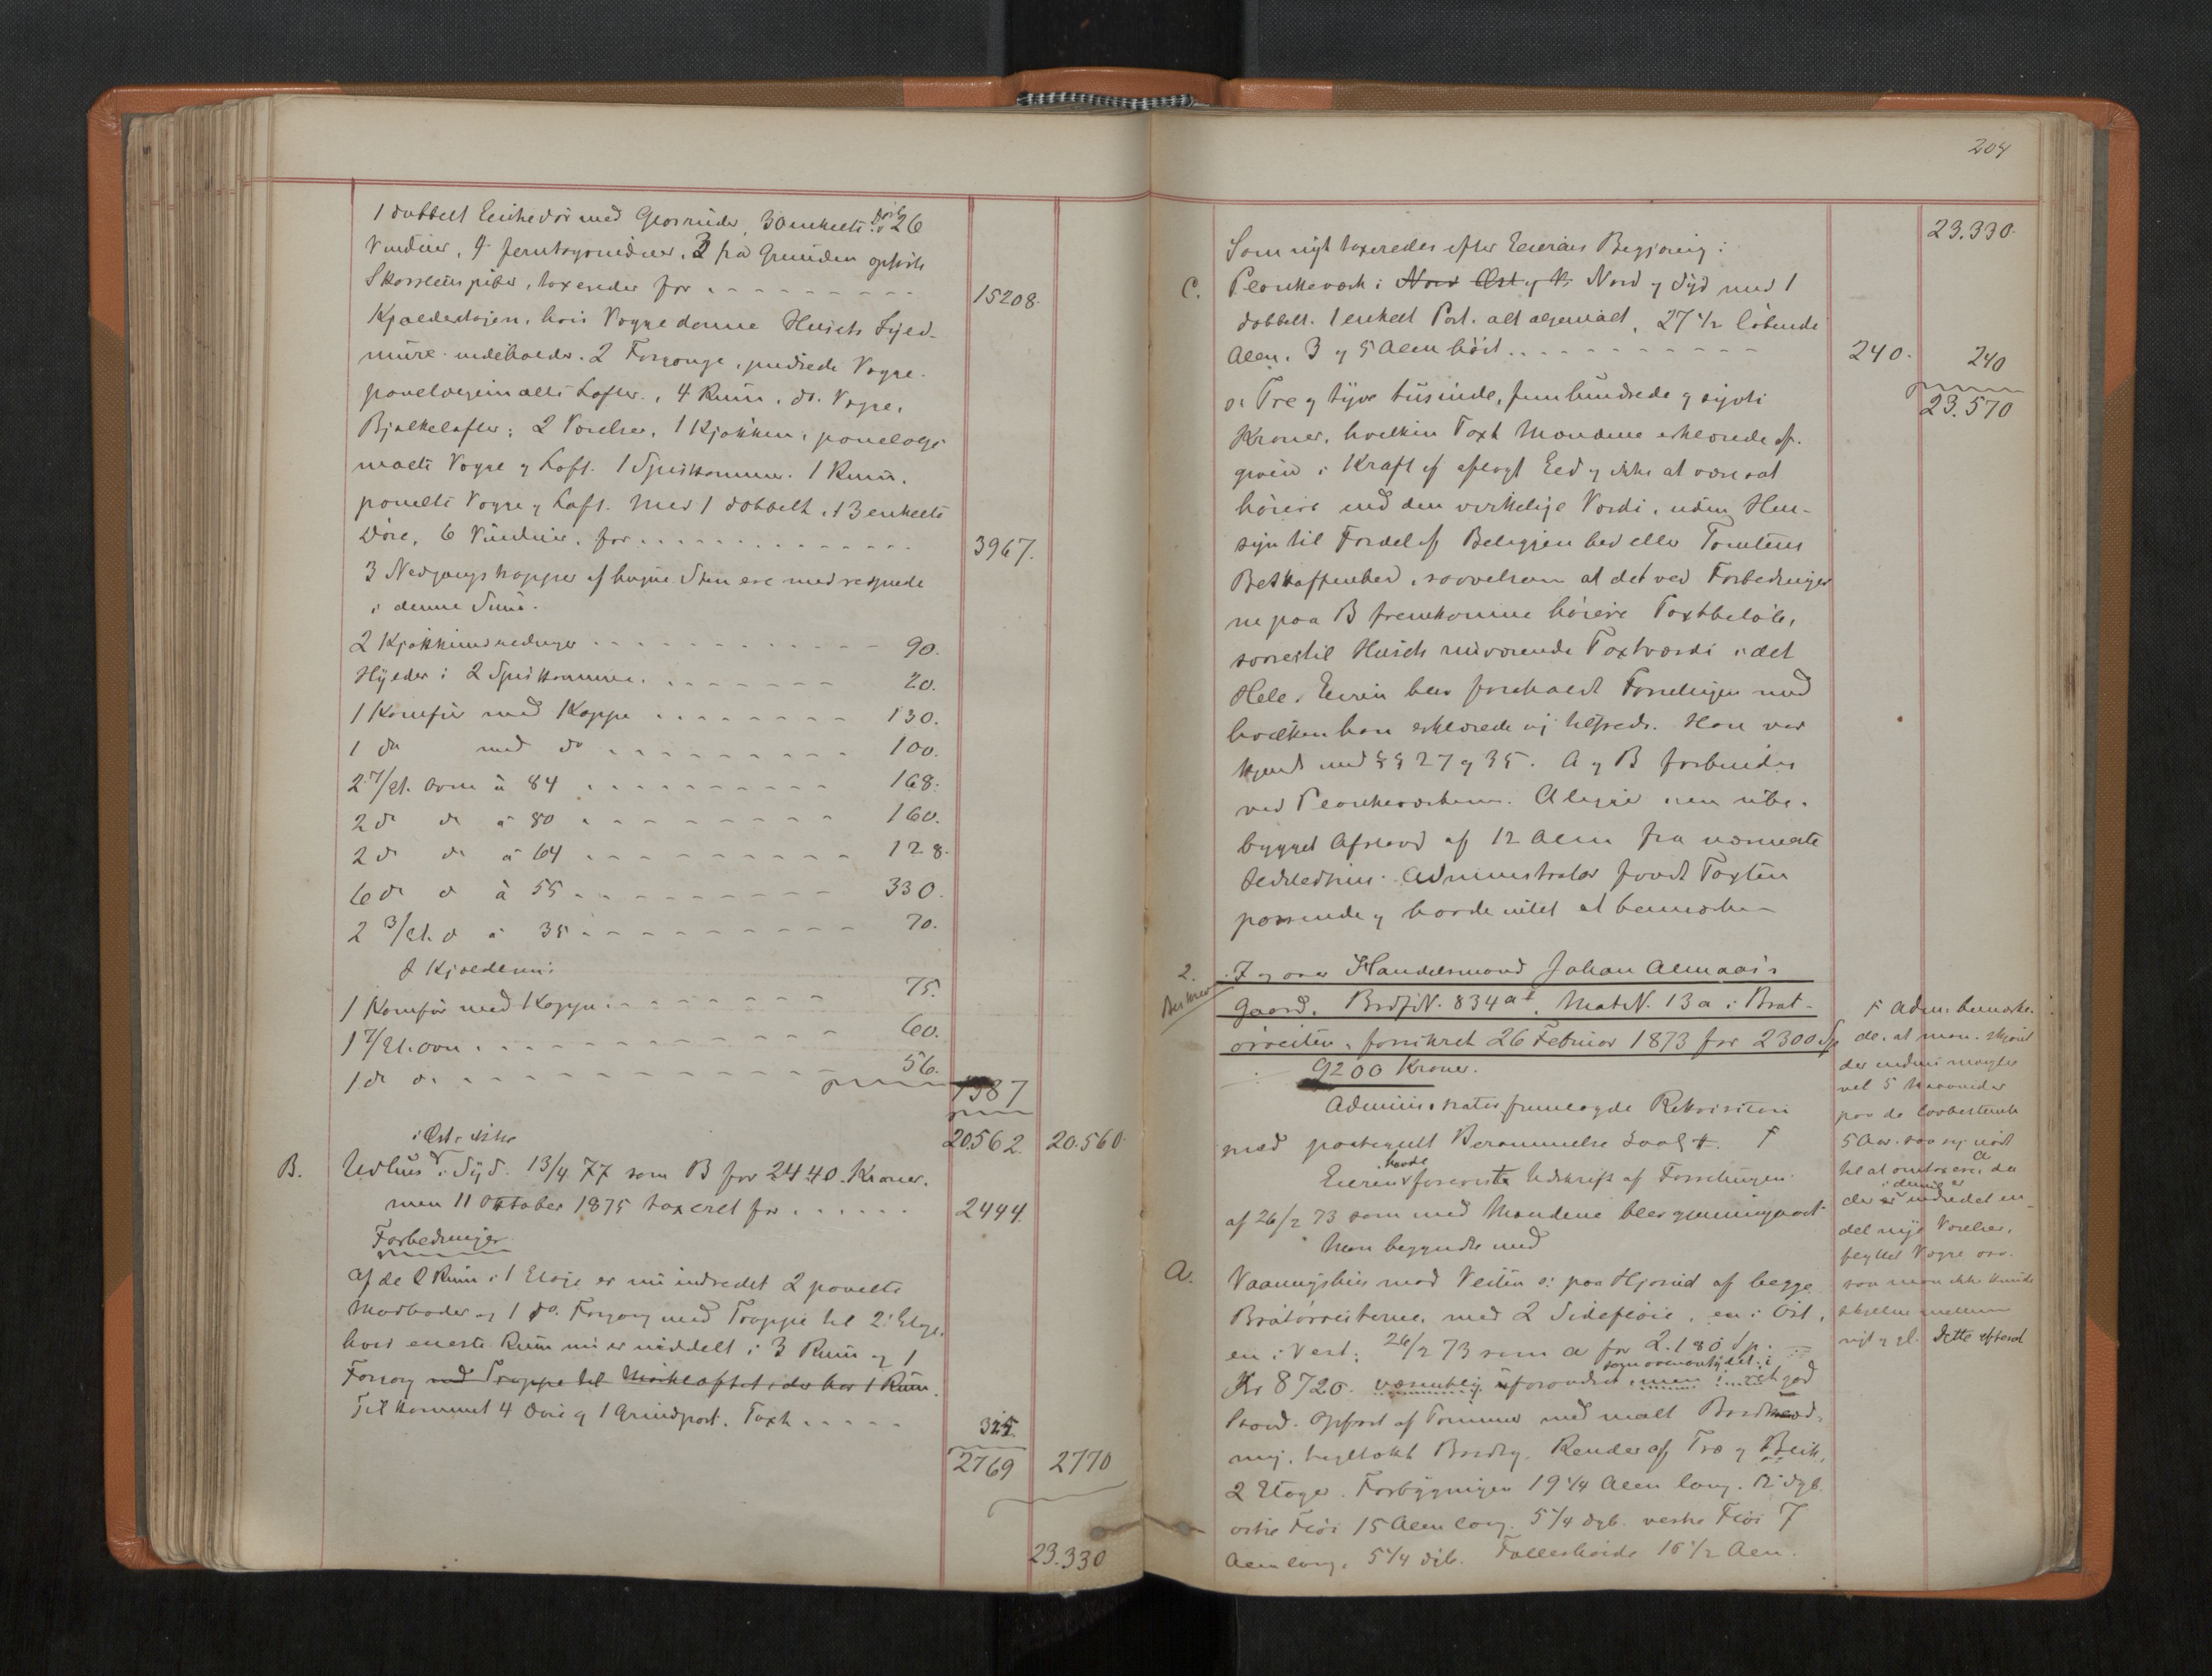 1 dobbelt Eenkedör med Glasruder, 30 enkelte Döre 26
Vinduer, 4 femtagsruder, 3 fra Grunden opförte
Skorsteenspiber, taxeredes for 15208.
Kjælderetagen, hvis Vægge danne Husets Fyld-
mure indeholder 2 Forgange, pudsede Vægge
panelvæg malte Lofter, 4 Rum, do. Vægge,
Bjælkelofter; 2 Værelser, 1 Kjøkken, panelede
malte Vægge og Loft. 1 Spiskammer. 1 Rum.
panelte Vægge og Loft. Med 1 dobbelt, 13 enkelte
Döre, 6 Vinduer, for 3967.
3 Nedgangstrapper af hugne Sten ere medregnede
i denne Sum.
2 Kjøkkenindredninger 90.
Hylder i 2 Spiskammere. 20.
1 Komfür med Kappe 130.
1 do med do 100.
2 7/Et. Ovne à 84 168.
2 do do à 80 160.
2 do do à 64 128.
6 do do à 55 330.
2 3/Et. do à 35 70.
I Kjælderen:
1 Komfür med Kappe 75.
1 7/Et. ovn 60.
1 do do 56.
1387
20562. 20.560.
i Öst, ikke
B. Udhus i Syd. 13/4 77 som B for 2440 Kroner.
men 11 Oktober 1875 taxeret for 2444.
Forbedringer
Af de 2 Rum i 1 Etage er nu indredet 2 panelte
Madboder og 1 do. Forgang med Trappe til 2' Etage,
hvis eneste Rum nu er inddelt i 3 Rum og 1
Forgang med Trappe til Mörkloftet, i der har 1 Rum.
Tilkommet 4 Döre og 1 Grindport. Taxt 325
2769 2770
23.330
204
23.330.
Som nyt taxeredes efter Eierens Begjæring:
C. Plankeværk i Nord Öst og V. Nord og Syd med 1
dobbelt, 1 enkelt Port, alt oljemalt, 27 1/2 löbende
Alen, 3 og 5 Alen höit 240. 240
23.570
o: Tre og tyve tusinde, fem hundrede og sytti
Kroner, hvilken Taxt Mændene erklærede af-
given i Kraft af aflagt Eed og ikke at være sat
höiere end den virkelige Værdi, uden Hen-
syn til Fordel af Beliggenhed eller Tomtens
Beskaffenhed, saavelsom at det ved Forbedringer-
ne paa B fremkomne höiere Taxtbeløb,
svarer til Husets nuværende Taxtværdi i det
Hele. Eieren blev foreholdt Forretningen med
hvilken han erklærede sig tilfreds. Han var
kjendt med §§ 27 og 35. A og B forbindes
ved Plankeværkerne. A ligger i en ube-
bygget Afstand af 12 Alen fra nærmeste
Ildstedhus. Administrator fandt Taxten
passende og havde intet at bemærke
2. I og over Handelsmand Johan Almaas's
Gaard, BrdfN. 834 a1, MatrN. 13a i Brat-
örveiten, forsikret 26 Februar 1873 for 2300 Sp
9200 Kroner.
Administrator fremlagde Rekvisition
med paategnet Berammelse Laal +. †
Eieren havde foreviste Udskrift af Forretningen
af 26/2 73 som med Mændene blev gjennemgaaet
Man begyndte med
A. Vaaningshus mod Veiten o: paa Hjørnet af begge
Bratörveiterne, med 2 Sideflöie, en i Öst,
en i Vest; 26/2 73 som a for 2.180 Sp.
Kr 8720. væsentlig uforandret men i ret god
Stand. Opført af Tømmer med malt Bordklæd-
ning, tegltækt Bordtag. Render af Træ og Blik,
2 Etager. Forbygningen 19 1/4 Alen lang. 12 dyb.
östre Flöi 15 Alen lang. 5 1/4 dyb. vestre Flöi 7
Alen lang, 5 1/4 dyb. Fælleshöide 16 1/2 Alen.
† Adm. bemærke-
de, at man, skjönt
der endnu mangler
vel 5 Maaneder
paa de lovbestemte
5 Aar, saa sig nödt
til at omtaxere a, da
der i denne er indredet en
del nye Værelser,
flyttet Vægge osv.
saa man ikke kunde
skjelne mellem
nyt og gl. Dette efterat